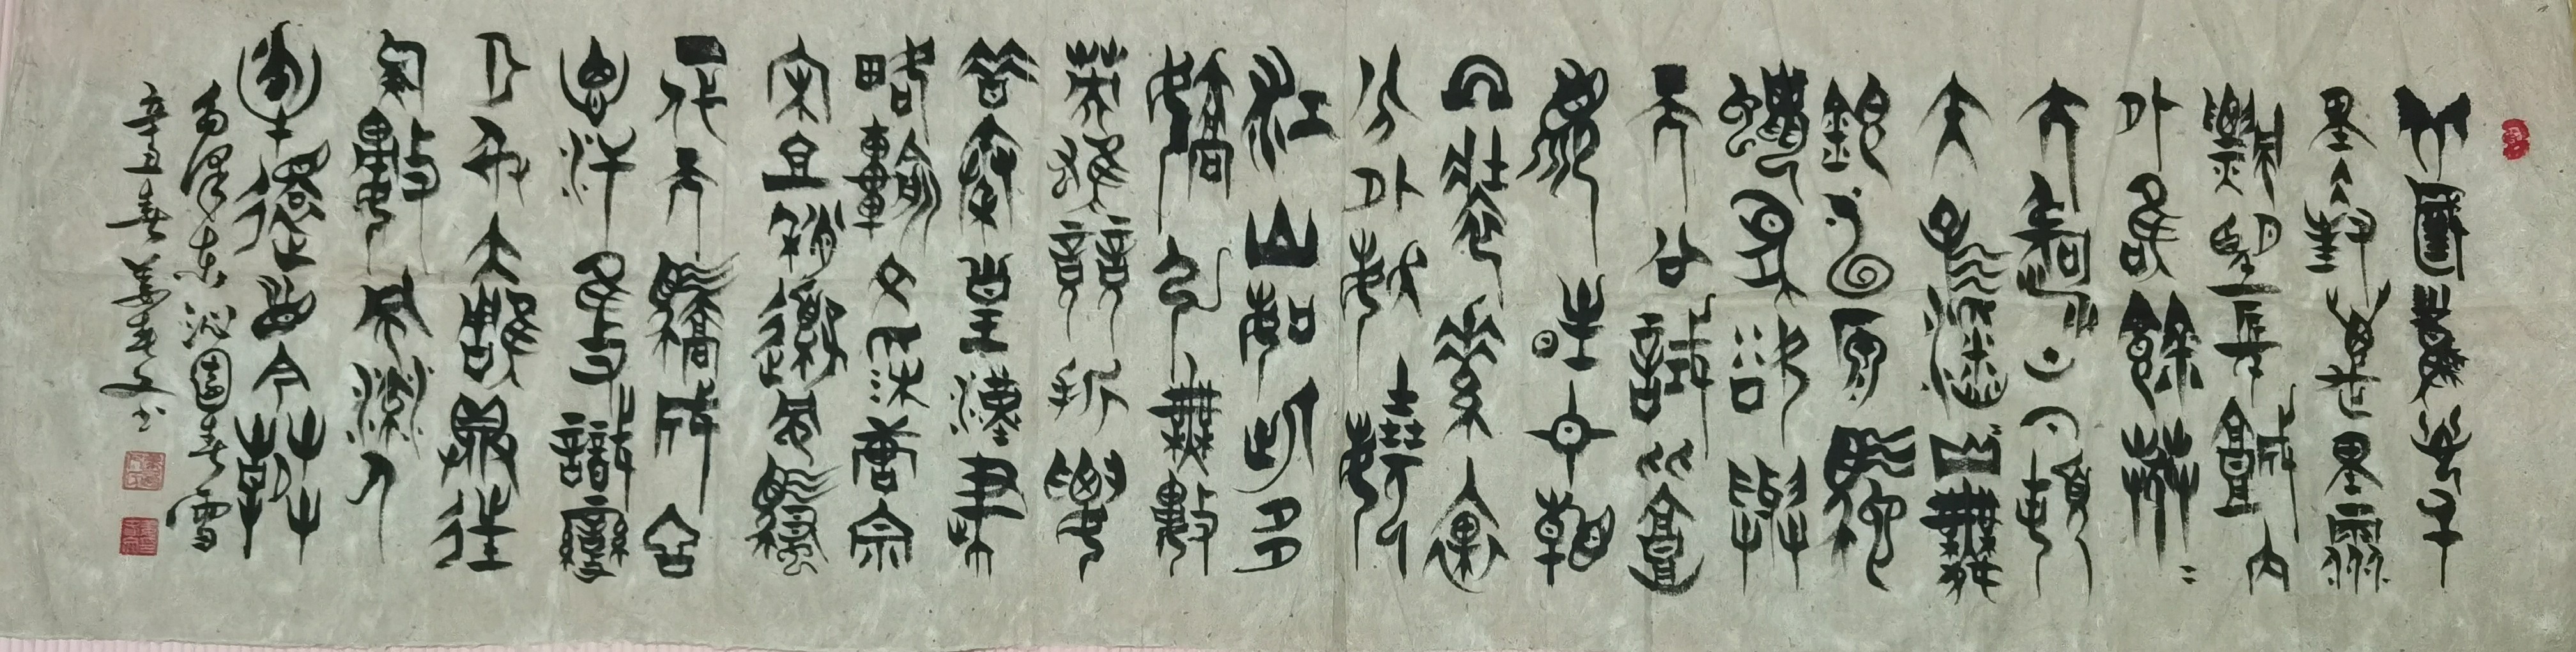 北國風光千
里冰封萬里雪
飄望長城内
外惟餘莽莽
大河上下頓
失滔滔山舞
銀蛇原馳
蠟象欲與
天公試比高
須晴日看
紅裝素裹
分外妖嬈
江山如此多
嬌引無數
英雄競折腰
惜秦皇漢武
略輸文采唐宗
宋祖稍遜風騷
一代天驕成吉
思汗只識彎
弓射大雕俱往
矣數風流人
物還看今朝
毛澤東沁園春雪
辛丑春